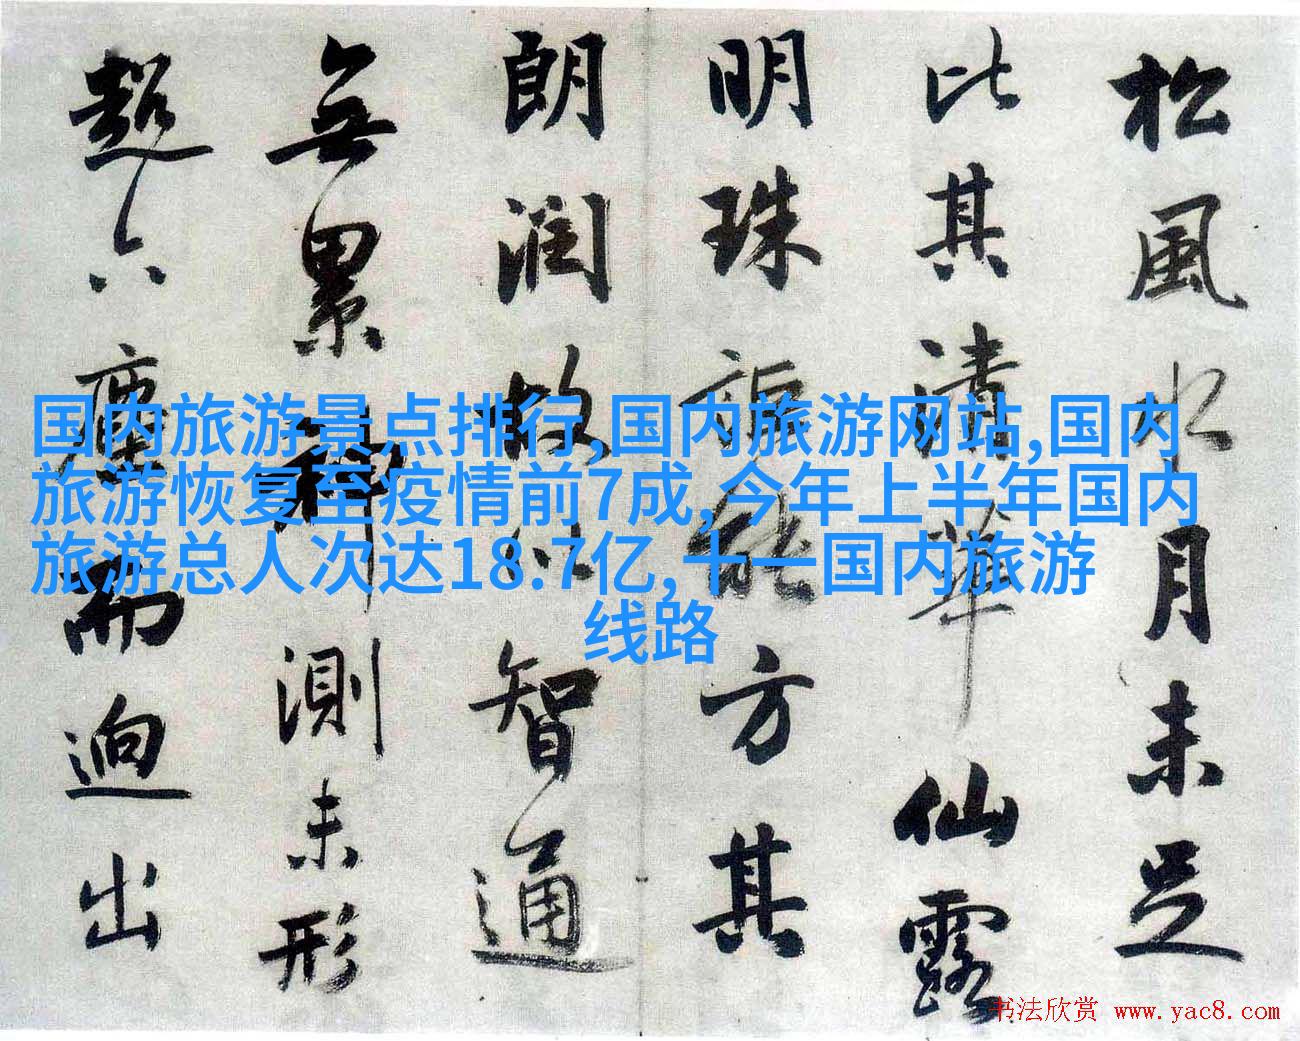 松風水月未足
比其清華仙露
明珠詎能方其
朗潤故以智通
無累神測未形
超六塵而迥出
国内旅游景点排行,国内旅游网站,国内
旅游恢复至疫情前7成,今年上半年国内
旅游总人次达18.7亿,十一国内旅游
线路
书法欣赏 www.yac8.com